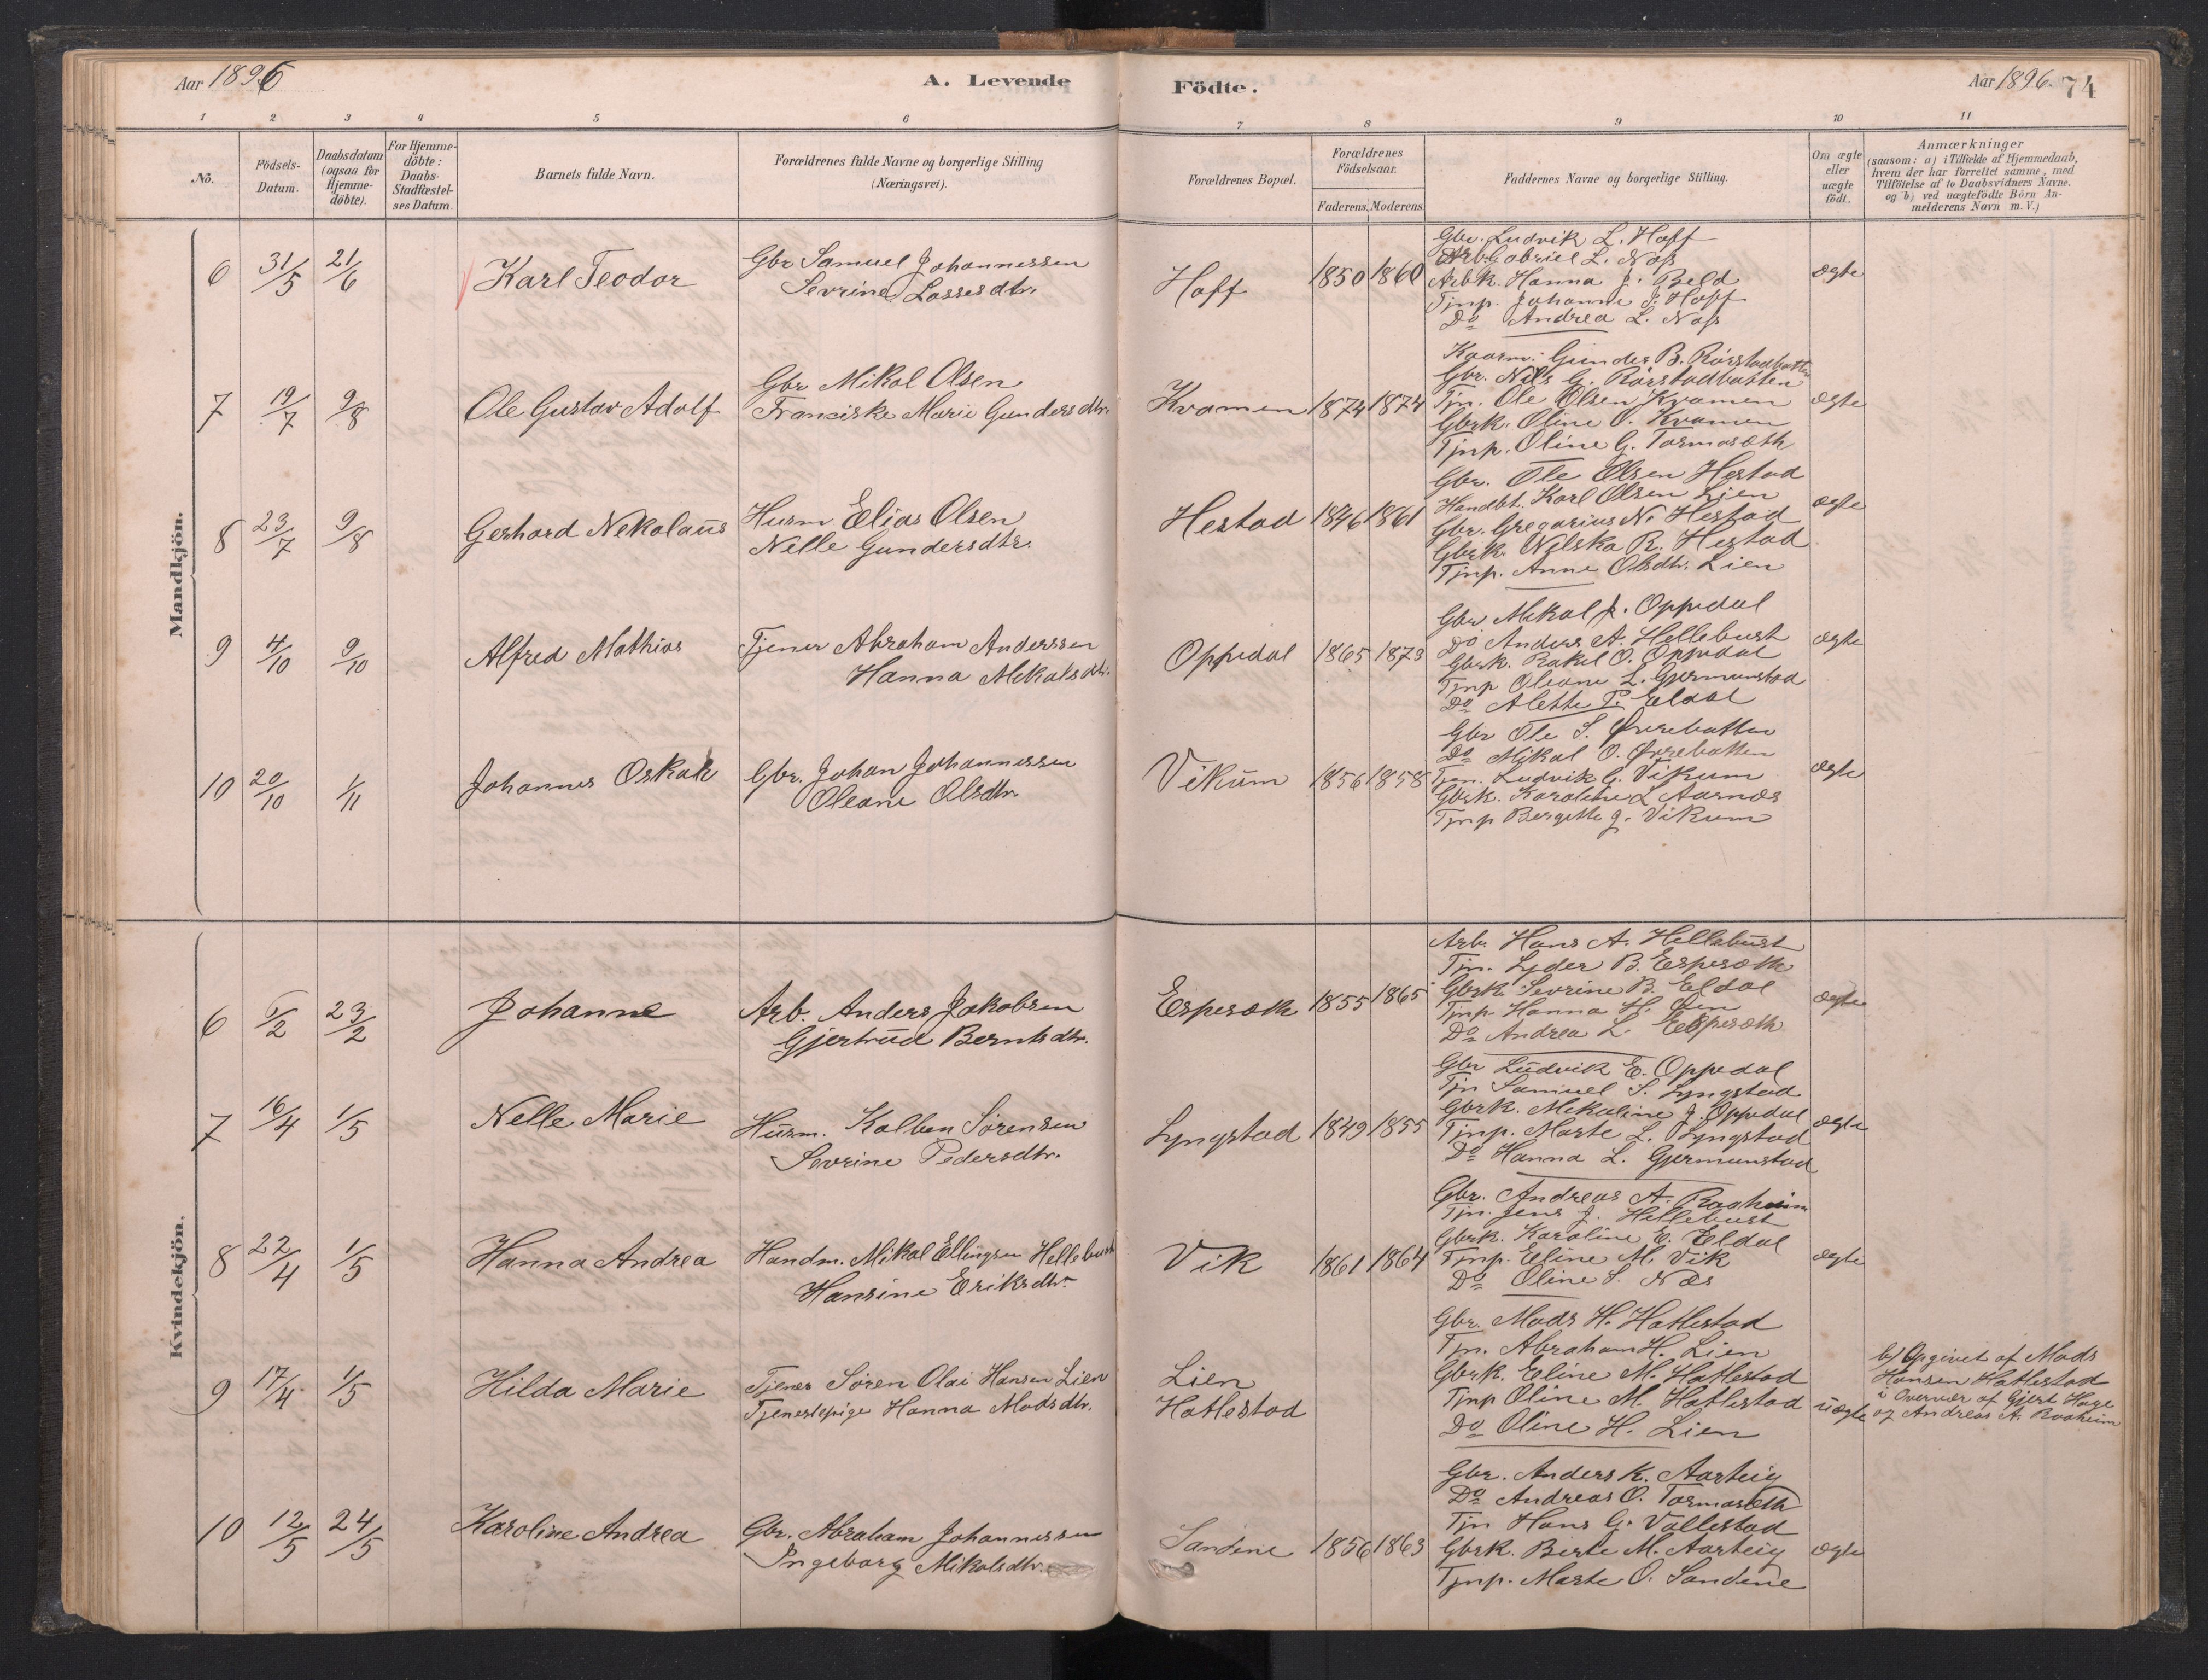 Aar 1896
A. Levende
Födte.
Aar 1896.
74
1 2 3 4 5 6 7 8 9 10 11
No.
Födsels-
Datum.
Daabsdatum
(ogsaa for
Hjemme-
döbte).
For Hjemme-
döbte:
Daabs-
Stadfæstel-
ses Datum.
Barnets fulde Navn.
Forældrenes fulde Navne og borgerlige Stilling
(Næringsvei).
Forældrenes Bopæl.
Forældrenes
Födselsaar.
Faderens. Moderens.
Faddernes Navne og borgerlige Stilling.
Om ægte
eller
uægte
födt.
Anmærkninger
(saasom: a) i Tilfælde af Hjemmedaab,
hvem der har forrettet samme, med
Tilföielse af to Daabsvidners Navne.
og b) ved uægtefödte Börn An-
melderens Navn m. V.)
Mandkjön.
6 31/5 21/6 Karl Teodor
Gbr Samuel Johannessen
Sevrine Lassesdtr.
Hoff 1850 1860
Gbr. Ludvik L. Hoff
Arb. Gabriel L. Næs
Arbk. Hanna J. Beld
Tjnp. Johanne J. Hoff
Do Andrea L. Næs
ægte
7 19/7 9/8 Ole Gustav Adolf
Gbr Mikal Olsen
Franciske Marie Gundersdtr.
Kvamen 1874 1874
Kaarm. Gunder B. Rörstadbotten
Gbr. Nils G. Rörstadbotten
Tjn. Ole Olsen Kvamen
Gbrk. Oline O. Kvamen
Tjnp. Oline G. Tormosæth
ægte
8 23/7 9/8 Gerhard Nekolaus
Husm Elias Olsen
Nelle Gundersdtr.
Hestad 1846 1861
Gbr. Ole Olsen Hestad
Handbt. Karl Olsen Lien
Gbr. Gregorius N. Hestad
Gbrk. Nilska R. Hestad
Tjnp. Anne Olsdtr. Lien
ægte
9 4/10 9/10 Alfred Mathias
Tjener Abraham Anderssen
Hanna Mikalsdtr.
Oppedal 1865 1873
Gbr Mikal J. Oppedal
Do Anders A. Hellebust
Gbrk. Rakel O. Oppedal
Tjnp Oleane L. Gjermunstad
Do Alette P. Eldal
ægte
10 20/10 1/11 Johannes Oskar
Gbr. Johan Johannessen
Oleane Olsdtr.
Vikum 1856 1858
Gbr Ole S. Övrebotten
Do Mikal O. Övrebotten
Tjen. Ludvik G. Vikum
Gbrk. Karoline L Aarnæs
Tjnp Bergitte J. Vikum
ægte
Kvindekjön.
6 6/2 23/2 Johanne
Arb. Anders Jakobsen
Gjertrud Berntsdtr.
Espesæth 1855 1865
Arb. Hans A. Hellebust
Tjn. Lyder B. Espesæth
Gbrk. Sevrine B. Eldal
Tjnp. Hanna H. Øen
Do Andrea L. Espesæth
ægte
7 16/4 1/5 Nelle Marie
Husm. Kolben Sörensen
Sevrine Pedersdtr.
Lyngstad 1849 1855
Gbr Ludvik E. Oppedal
Tjn Samuel S. Lyngstad
Gbrk. Mikaline J. Oppedal
Tjnp. Marte L. Lyngstad
Do Hanna L. Gjermunstad
ægte
8 22/4 1/5 Hanna Andrea
Handm. Mikal Ellingsen Hellebust
Hansine Eriksdtr.
Vik 1861 1864
Gbr. Andreas A. Raaheim
Tjn. Jens J. Hellebust
Gbrk. Karoline E. Eldal
Tjnp. Eline M. Vik
Do Oline S. Næs
ægte
9 17/4 1/5 Hilda Marie
Tjener Sören Olai Hansen Lien
Tjenestepige Hanna Madsdtr.
Lien
Hatlestad
Gbr. Mads H. Hatlestad
Tjn. Abraham H. Lien
Gbrk. Eline M. Hatlestad
Tjnp Oline M. Hatlestad
Do Oline H. Lien
uægte
b) Opgivet af Mads
Hansen Hatlestad
i Overvær af Gjert Hage
og Andreas A. Raaheim
10 12/5 24/5 Karoline Andrea
Gbr. Abraham Johannessen
Ingeborg Mikalsdtr.
Sandene 1856 1863
Gbr. Anders K. Aarteig
Do Andreas O. Tormosæth
Tjn Hans G. Vallestad
Gbrk. Berte M. Aarteig
Tjnp. Marte O. Sandene
ægte